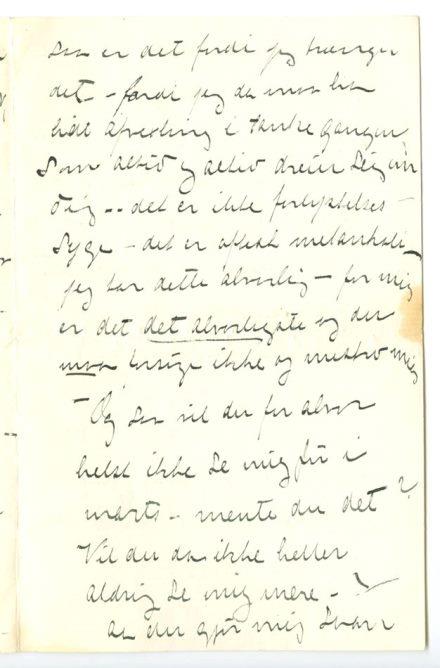 saa er det fordi jeg trænger
det – fordi jeg da maa ha
lidt afveksling i tanke gangen
som altid og altid dreier seig om
dig -- det er ikke forlystelses –
syge – det er oftest melankoli –
jeg tar dette alvorlig – for mig
er det det alvorligste og du
maa ikke og mistro mig
– Og saa vil du for alvor
helst ikke se mig før i
marts – mente du det ?
Vil du da ikke heller
aldrig se mig mere – ?
du gjør mig svar